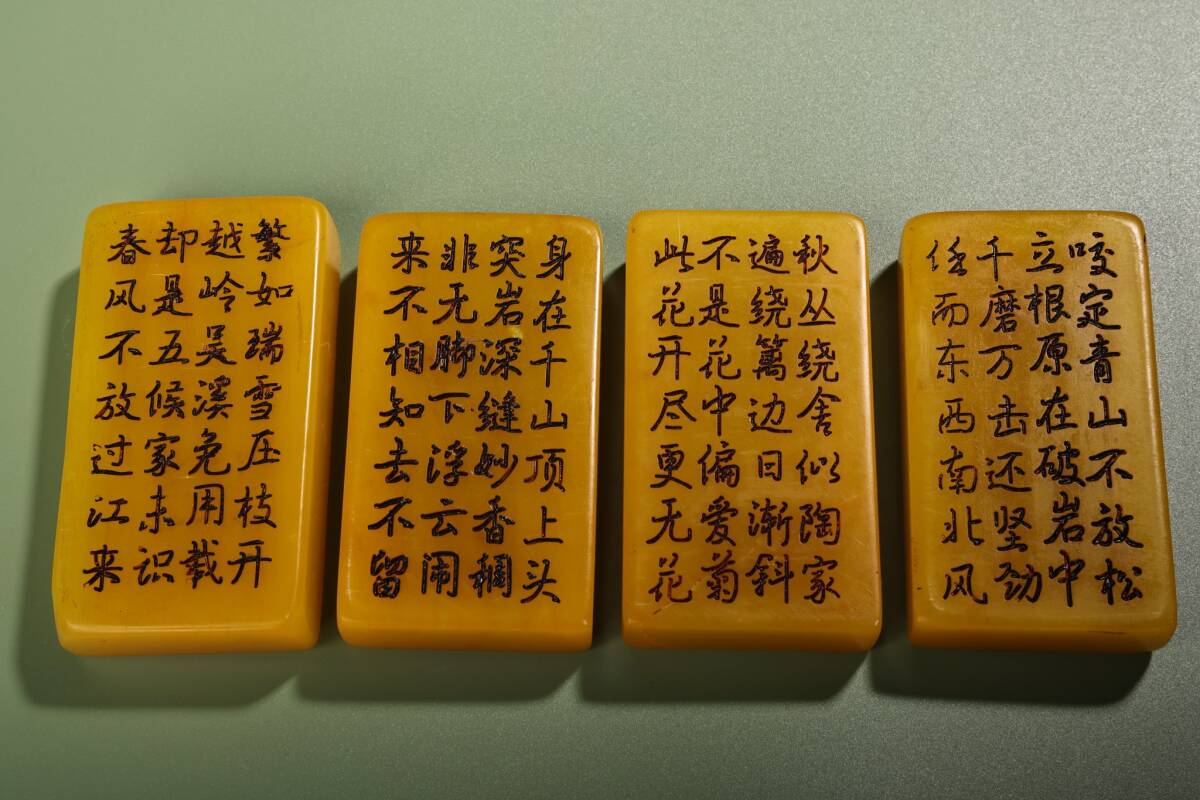 繁如瑞雪压枝开
越岭吴溪免用载
却是五候家未识
春风不放过江来
身在千山顶上头
突岩深缝妙香稠
非无脚下浮云闹
来不相知去不留
秋丛绕舍似陶家
遍绕篱边日渐斜
不是花中偏爱菊
此花开尽更无花
咬定青山不放松
立根原在破岩中
千磨万击还坚劲
任而东西南北风